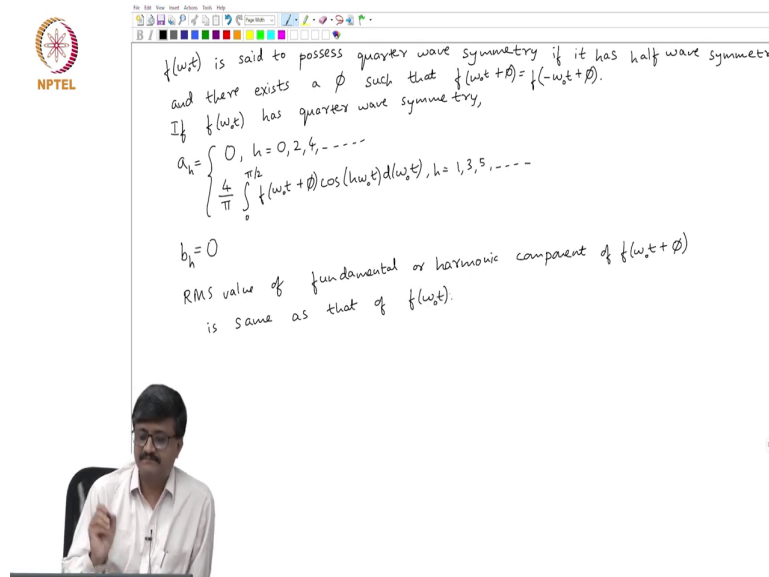 File Edit View Insert Actions Tools Help
Page Width
B I
NPTEL
f(ω₀t) is said to possess quarter wave symmetry if it has half wave symmetr
and there exists a ϕ such that f(ω₀t + ϕ) = f(-ω₀t + ϕ).
If f(ω₀t) has quarter wave symmetry,
aₕ = { 0, h = 0, 2, 4, -----
4/π ∫₀^{π/2} f(ω₀t + ϕ) cos(hω₀t) d(ω₀t), h = 1, 3, 5, ----
bₕ = 0
RMS value of fundamental or harmonic component of f(ω₀t + ϕ)
is same as that of f(ω₀t).